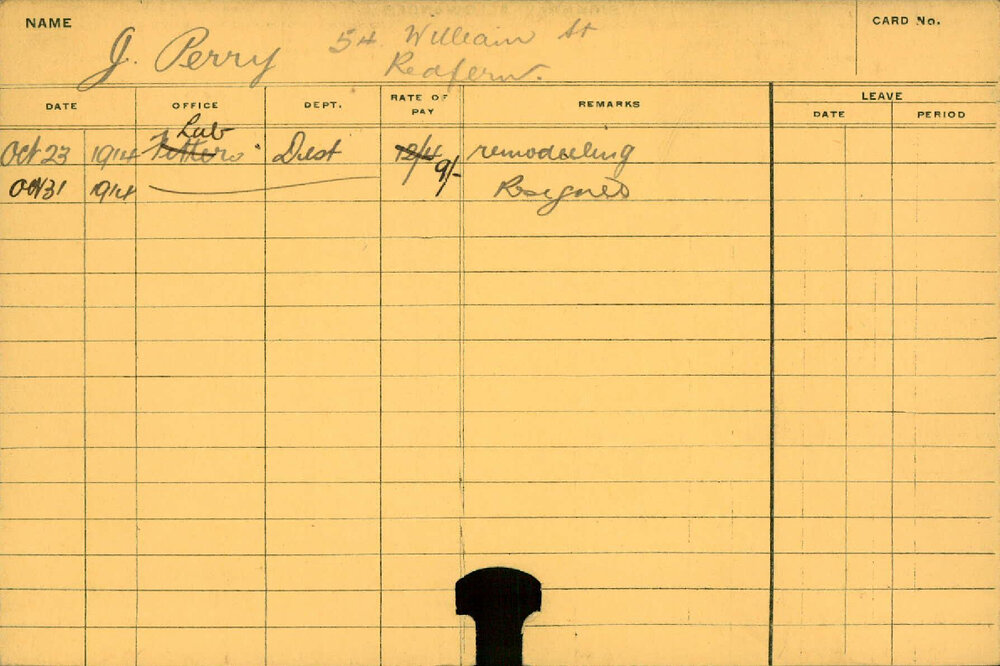 NAME J. Perry 54 William St CARD No.
Redfern.
DATE OFFICE DEPT. RATE OF PAY REMARKS LEAVE
DATE PERIOD
Lab
Oct 23 1914 Fitters Dist 12/4 9/- remodeling
Oct 31 1914 Resigned